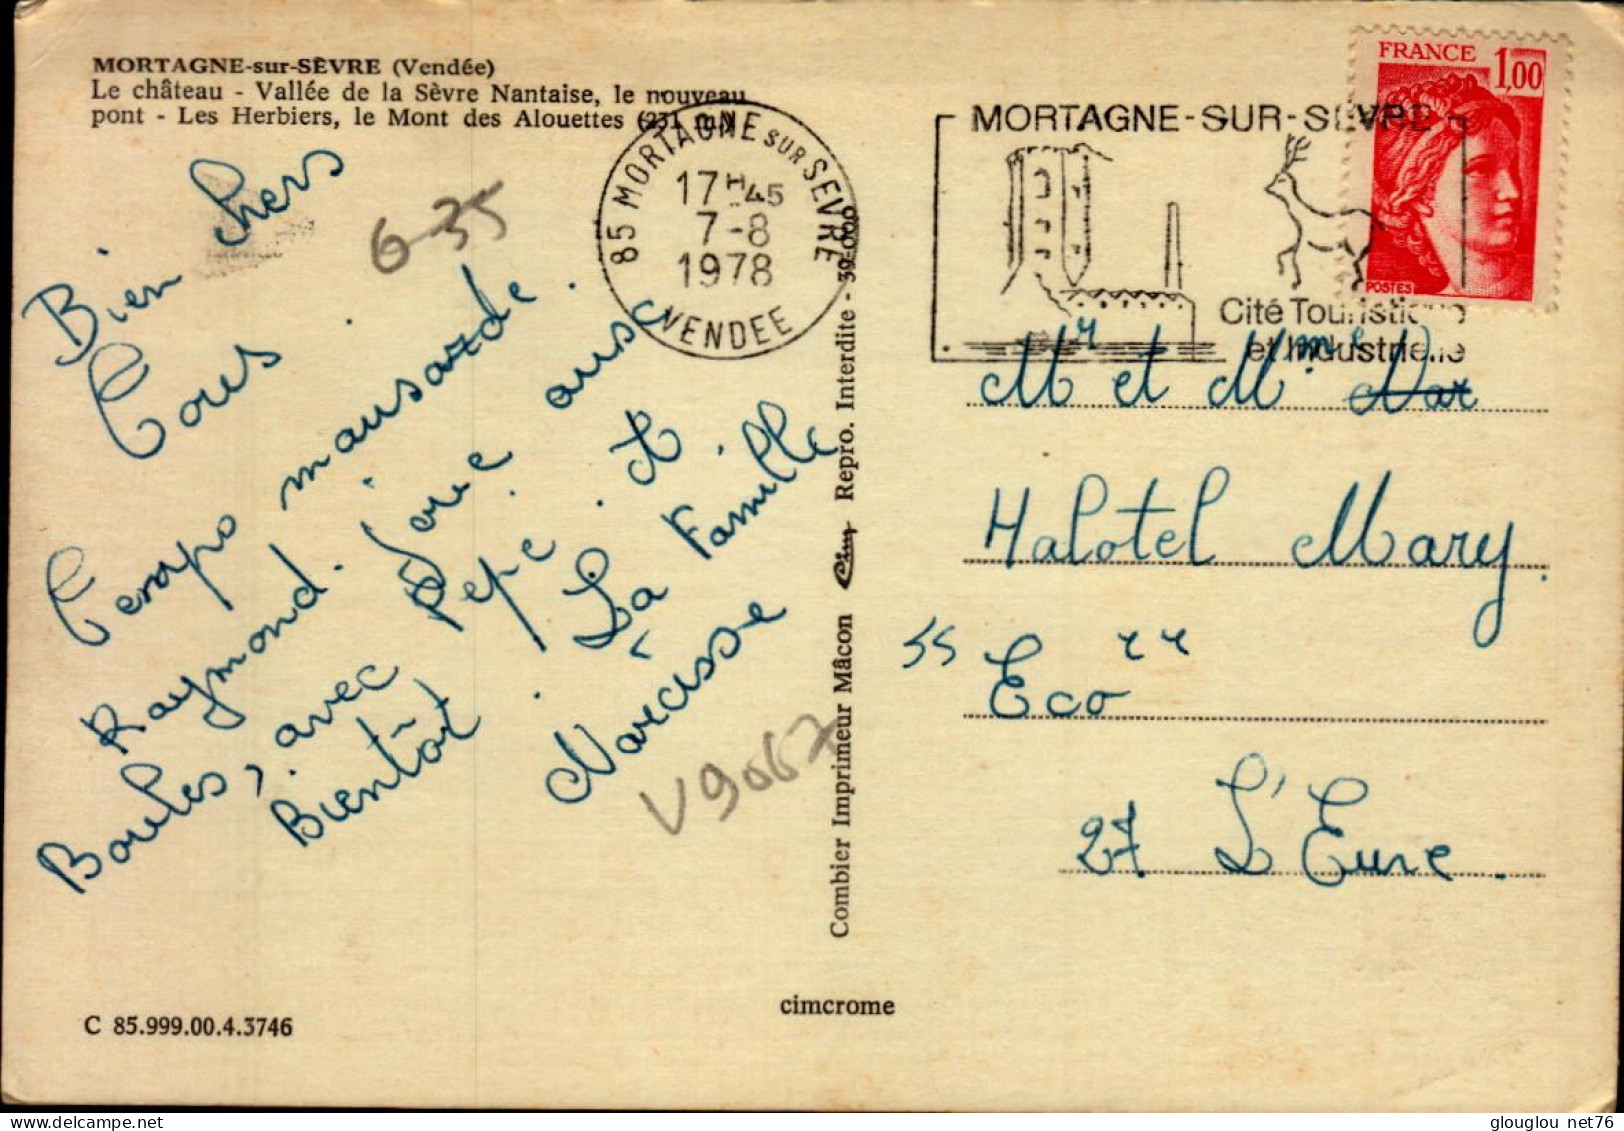 MORTAGNE-sur-SÈVRE (Vendée)
Le château - Vallée de la Sèvre Nantaise, le nouveau
pont - Les Herbiers, le Mont des Alouettes (231 m)
Bien chers
Tous
Temps maussarde.
Raymond. joue aussi
Boules, avec Pépé. et.
Bientôt. La Famille
Narcisse
6-35
V9067
C 85.999.00.4.3746
85 MORTAGNE SUR SEVRE
17H45
7-8
1978
VENDEE
Combier Imprimeur Mâcon Cim Repro. Interdite - 39.000
cimcrome
MORTAGNE-SUR-SEVRE
Cité Touristique
et Industrielle
FRANCE 1,00
POSTES
Mr et Mme Nar
Halotel Mary.
" Eco "
27 L'Eure.
glouglou net76